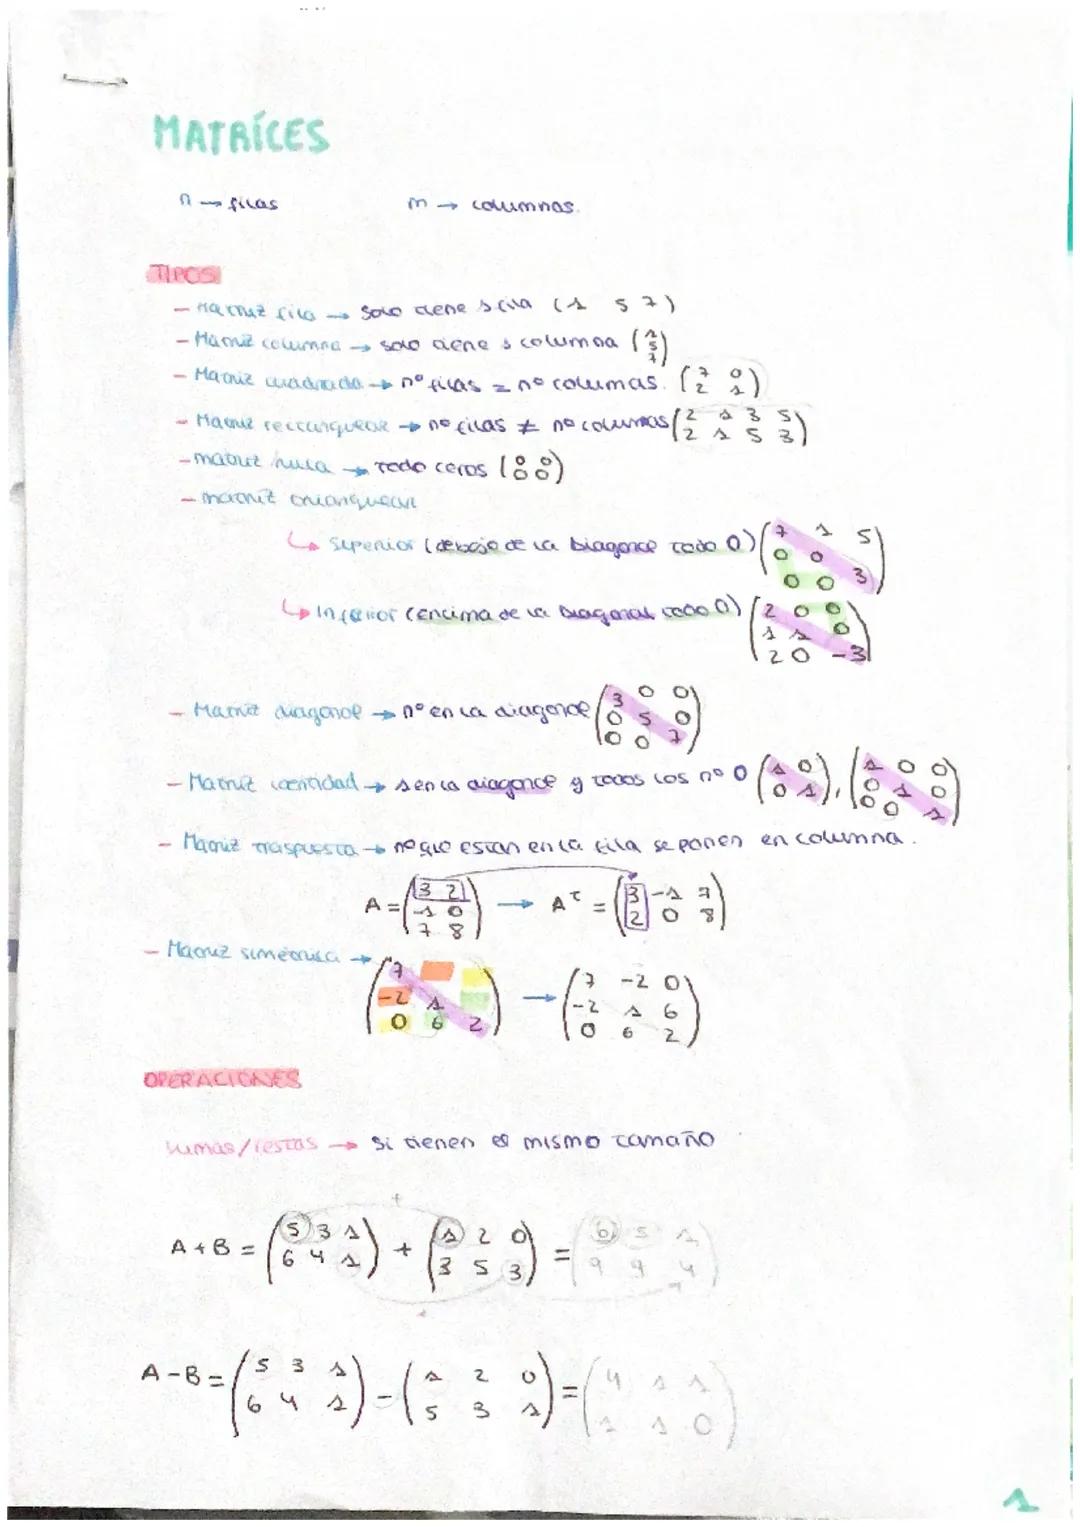 MATRÍCES
n → filas m → columnas.
TIPOS
- Matriz fila → solo tiene 1 fila (1 5 7)
- Matriz columna → solo tiene 1 columna (1 5 7)
- Matriz cuadrada → nº filas = nº columas. (7 0
2 1)
- Matriz rectangular → nº filas ≠ nº columas (2 1 3 5
2 1 5 3)
- matriz nula → Todo ceros (0 0
0 0)
- matriz triangular
↳ Superior (debajo de la Diagonal todo 0) (7 1 5
0 0
0 0 3)
↳ Inferior (encima de la Diagonal todo 0) (2 0 0
1 1 0
2 0 -3)
- Matriz diagonal → nº en la diagonal (3 0 0
0 5 0
0 0 7)
- Matriz identidad → 1 en la diagonal y todos los nº 0 (1 0
0 1), (1 0 0
0 1 0
0 0 1)
- Matriz traspuesta → nº que estan en la fila se ponen en columna.
A = (3 2
-1 0
7 8) → Aᵗ = (3 -1 7
2 0 8)
- Matriz simétrica → (7
-2 1
0 6 2) → (7 -2 0
-2 1 6
0 6 2)
OPERACIONES
sumas/restas → Si tienen el mismo tamaño
+
A + B = (5 3 1
6 4 1) + (1 2 0
3 5 3) = (6 5 1
9 9 4)
A - B = (5 3 1
6 4 1) - (1 2 0
5 3 1) = (4 1 1
1 1 0)
1